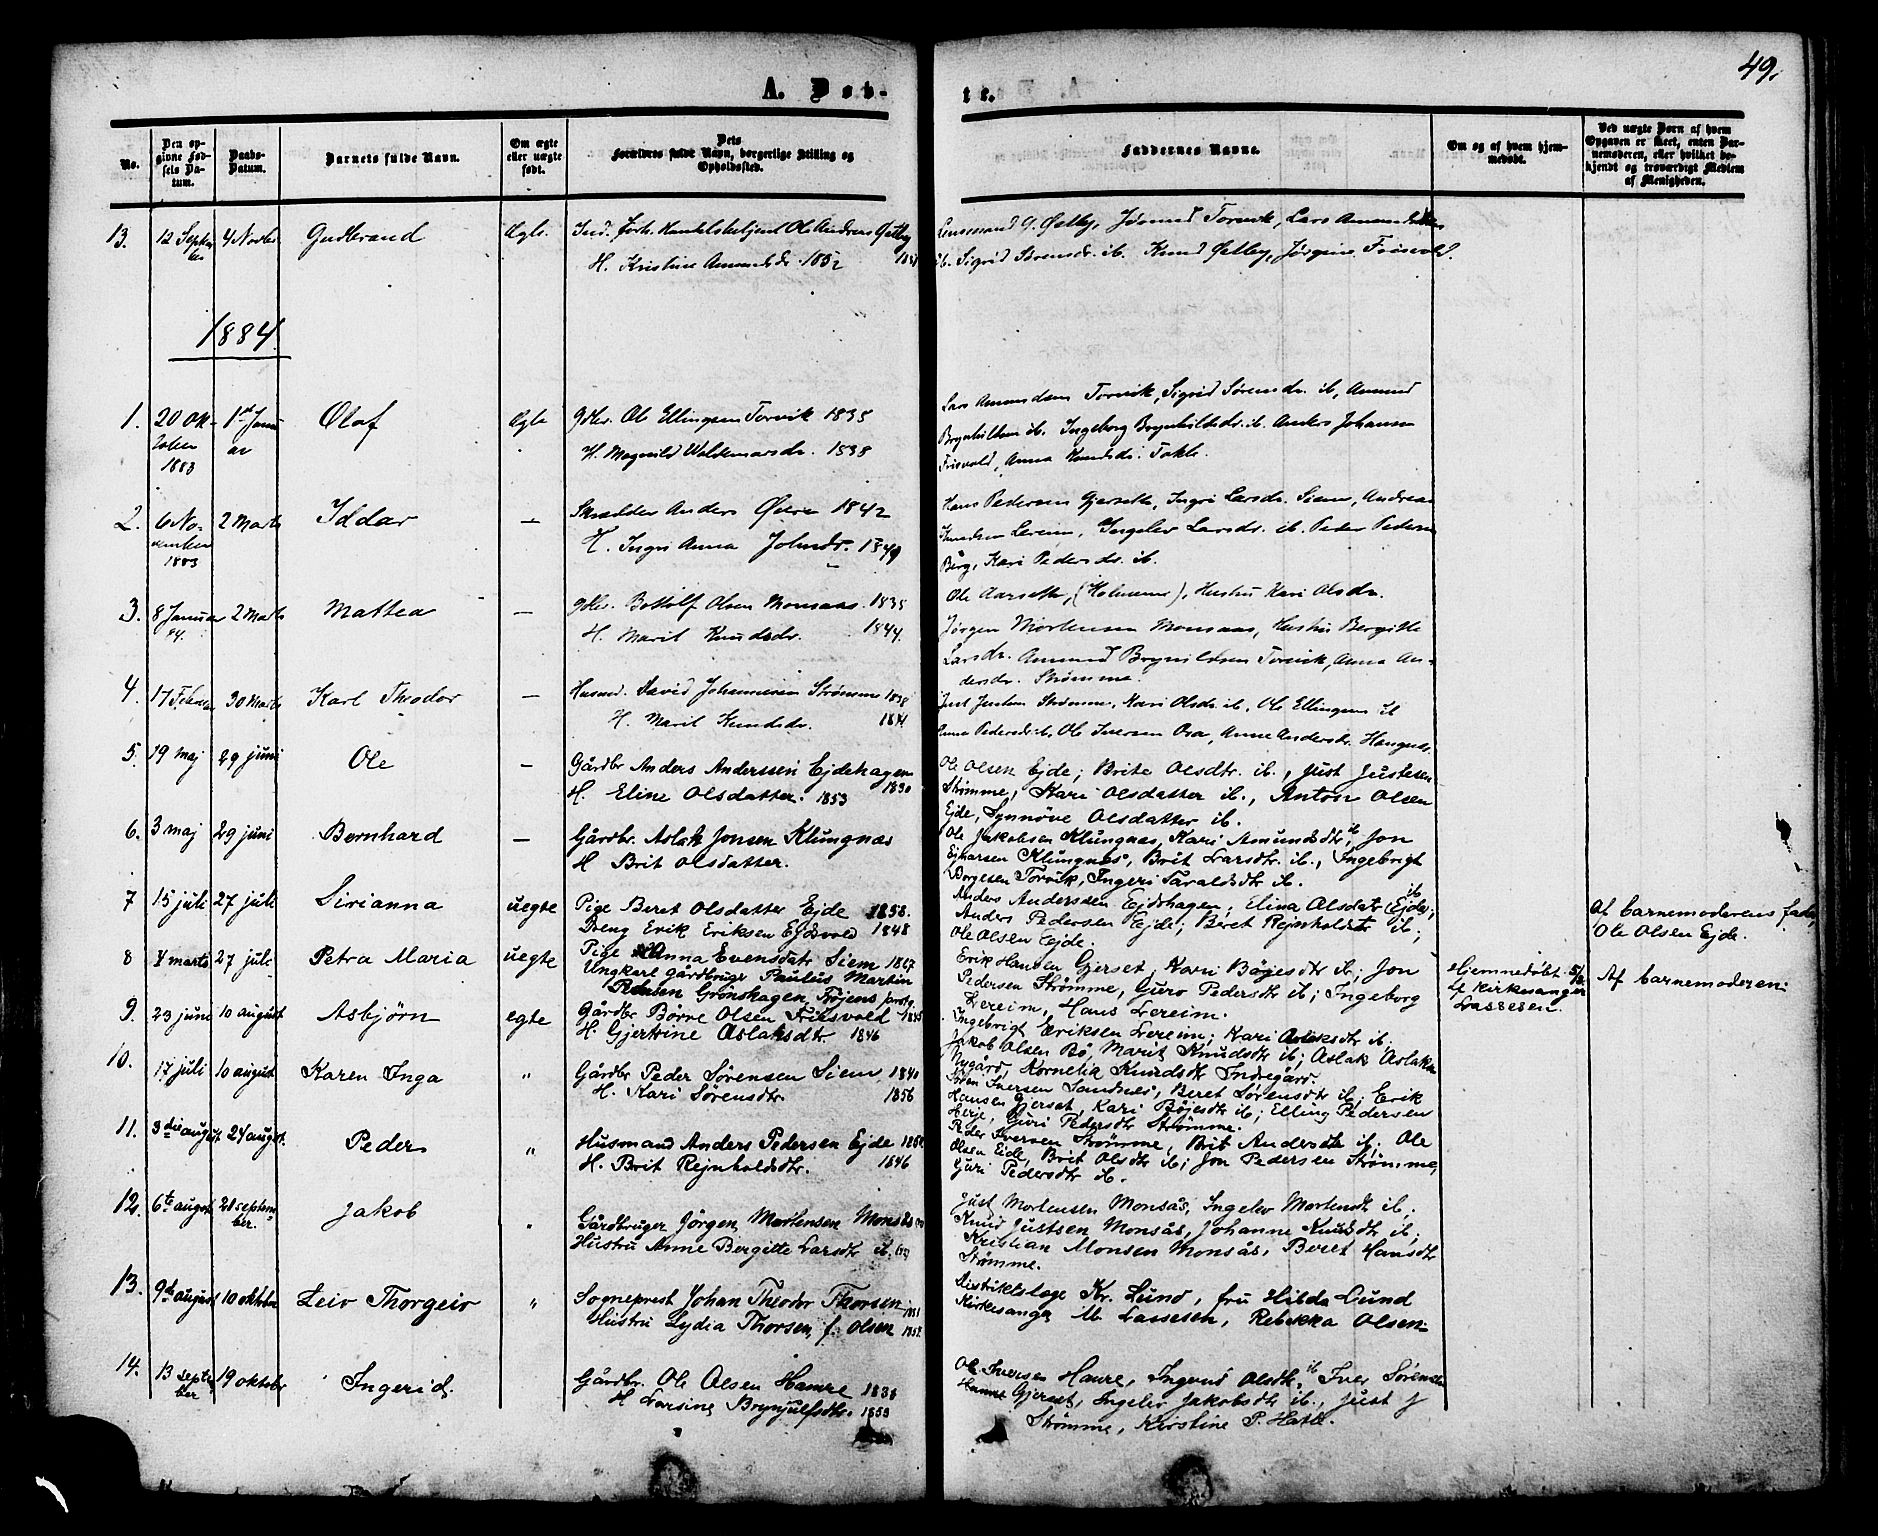 49.
A. Døb-
te.
No.
Den op-
givne Fød-
sels Da-
tum.
Daabs-
Datum.
Barnets fulde Navn.
Om ægte
eller uægte
født.
Dets
Forældres fulde Navn, borgerlige Stilling og
Opholdssted.
Faddernes Navne.
Om og af hvem hjem-
medøbt.
Ved uægte Børn af hvem
Opgaven er skeet, enten Bar-
nemoderen, eller hvilket be-
kjendt og troværdigt Medlem
af Menigheden.
13. 12 Septem
ber
4 Novbr.
Gudbrand
Ægte.
Ole Andreas Østby
H. Kristine Amundsdr. 1852
Lensmand G. Østby, Torvik, Lars Amundsen
ib. Sigrid Sørensdr. ib. Knud Østby, Jørgine Frisvold.
1884.
1. 20 Ok-
tober
1883
1st Janu
ar
Olaf
Ægte
Gdbr. Ole Ellingsen Torvik 1835
H. Magnild Waldemarsdr. 1838
Lars Amundsen Torvik, Sigrid Sørensdr. ib, Amund
Brynhildsen ib. Ingeborg Brynhildsdr. ib. Anders Johansen
Frisvold, Anna Knudsdr. Tokle.
2. 6 No-
vember
1883
2 Marts
Iddar
—
Anders Øvre 1842
H. Ingri Anna Johnsdr. 1849
Hans Pedersen Gjersette, Ingri Larsdr. Siem, Andreas
Knudsen Lereim, Ingelev Larsdr. ib. Peder Pedersen
Berg, Kari Pedersdr. ib.
3. 8 Januar
84.
2 Marts
Mattea
—
Gdbr. Bottolf Olsen Monsaas. 1835
H. Marit Knudsdr. 1844.
Ole Aarsette, Hustru Kari Olsdr.
Jørgen Mortensen Monsaas, Hustru Bergitte
Larsdr. Amund Brynildsen Torvik, Anna An-
dersdr. Strømme.
4. 17 Februar
30 Marts
Karl Theodor
—
Husmd. David Johannesen Strømme 1838
H. Marit Knudsdr. 1841
Just Justsen Strømme, Kari Olsdr ib. Ole Ellingsen ib
Anna Pedersdr ib, Ole Iversen Osa, Anne Andersdr.
5. 19 maj
29 juni
Ole
—
Gårdbr Anders Anderssen Ejdehagen
1830
H. Eline Olsdatter. 1853
Ole Olsen Ejde; Brite Olsdtr. ib., Just Justesen
Strømme, Kari Olsdatter ib., Anton Olsen
Ejde, Synnøve Olsdatter ib.
6. 3 maj
29 juni
Bernhard
—
Gårdbr. Aslak Jonsen Klungnæs
H Brit Olsdatter.
Ole Jakobsen Klungnæs, Kari Amundsdtr ib, Jon
Ejnarsen Klungnæs, Brit Larsdtr. ib., Ingebrigt
Borgesen Torvik, Ingeri Taraldsdtr ib.
7 15 juli
27 juli
Sirianna
uegte
Pige Beret Olsdatter Ejde 1858.
Dreng Erik Eriksen Ejdsvold 1848
Anders Anderssen Ejdehagen, Elina Olsdatr (Ejde) ib;
Anders Pedersen Ejde; Beret Rejnholdsdtr ib;
Ole Olsen Ejde.
Af barnemoderens fader,
Ole Olsen Ejde.
8 4 marts
27 juli
Petra Maria
uegte
Pige Anna Evensdatr Siem 1867
Ungkarl gårdbruger Paulus Martin
Grønskagen, Frøjens prstg.
Erik Hansen Gjerset, Kari Bøjesdtr ib; Jon
Pedersen Strømme, Guro Pedersdtr ib; Ingeborg
Lereim, Hans Lereim.
Hjemmedøbt 5/3
af kirkesanger
Lassesen.
Af barnemoderen.
9. 23 juni
10 august
Asbjørn
egte
Gårdbr Børre Olsen Friksvold 1845
H. Gjertrine Aslaksdtr. 1846
Ingebrigt Eriksen Lereim; Kari Aslaksdtr ib.
Jakob Olsen Bø, Marit Knudsdtr ib; Aslak Aslaksen
Nygård, Kornelia Knudsdtr Indregård.
10. 17 juli
10 august
Karen Inga
"
Gårdbr Peder Sørensen Siem, 1840
H. Kari Sørensdtr. 1856
Søren Iversen Sandnes, Beret Sørensdtr ib; Erik
Hansen Gjerset, Kari Bøjesdtr ib; Elling Pedersen
Herje, Guri Pedersdtr Strømme.
11. 3die august
24 august.
Peder
"
Husmand Anders Pedersen Ejde
H. Brit Rejnholdsdtr. 1846
Peder Iversen Strømme, Brit Andersdtr ib. Ole
Olsen Ejde, Brit Olsdtr ib; Jon Pedersen Strømme,
Guri Pedersdtr ib.
12. 6te august
21 septem-
ber.
Jakob
"
Gårdbruger Jørgen Mortensen Monsås
Hustru Anne Bergitte Larsdtr ib.
Just Mortensen Monsås, Ingelev Mortensdtr ib;
Knud Justsen Monsås, Johanne Knudsdtr ib;
Kristian Monsen Monsås, Beret Hansdtr
Strømme.
13. 9de august
10 oktober
Leiv Thorgeir
"
Sogneprest Johan Theodor Thorsen 1851
Hustru Lydia Thorsen, f. Olsen
Distriktslæge Kr. Lund, fru Hilda Lund
Kirkesanger M. Lassesen, Rebekka Olsen
14. 13 septem
ber
19 oktober
Ingerid.
Gårdbr. Ole Olsen Hamre 1838
H Larsine Brynjulfsdtr. 1853
Ole Iversen Hamre, Ingerid Olsdtr. ib, Iver Sørensen
Gjerset, Ingelev Jakobsdtr ib., Just J
Strømme, Kirstine P. Hatle.